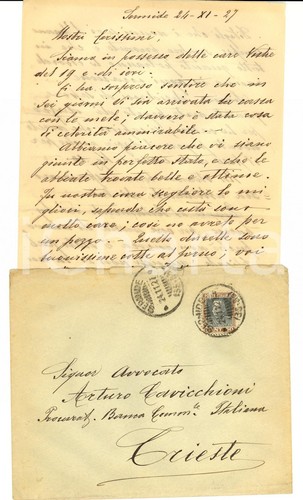 Sermide 24-XI-27
Nostri Carissimi,
Siamo in possesso delle care Vostre
del 19 e di ieri.
Ci ha sorpreso sentire che in
sei giorni di sia arrivata la cassa
con le mele; davvero è stata cosa
di celerità ammirabile.
Abbiamo piacere che vi siano
giunte in perfetto stato, e che le
abbiate trovate belle e ottime.
Fu nostra cura scegliere le mi-
gliori, sapendo che costì sono
molto care; così ne avrete per
un pezzo. Quelle durelle sono
buonissime cotte al forno; voi
Signor Avvocato
Arturo Cavicchioni
Procurat. Banca Comm.le Italiana
Trieste